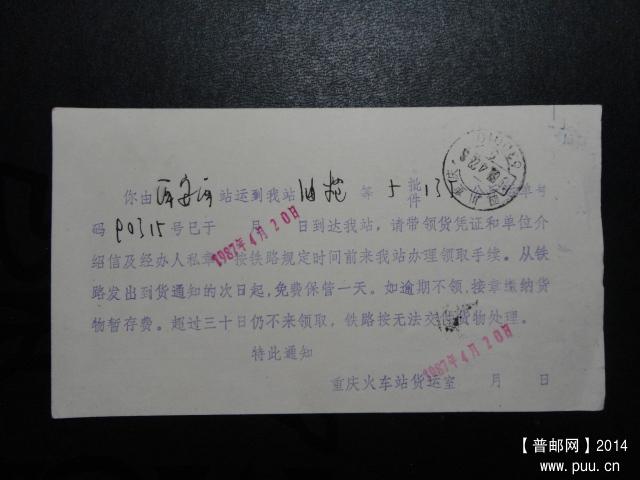 你由 站运到我站 等 5 批件 13 单号
码 P0315 号已于 月 日到达我站，请带领货凭证和单位介
绍信及经办人私章 按铁路规定时间前来我站办理领取手续。从铁
路发出到货通知的次日起，免费保管一天。如逾期不领，按章缴纳货
物暂存费。超过三十日仍不来领取，铁路按无法交付货物处理。
特此通知
重庆火车站货运室 月 日
1987年4月20日
1987年4月20日
【普邮网】2014
www.puu.cn